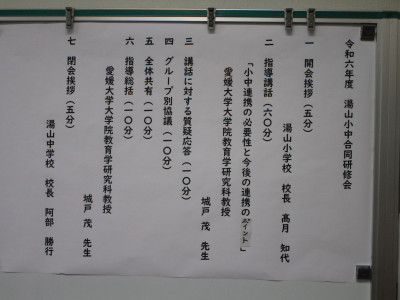 令和六年度 湯山小中合同研修会
一 開会挨拶（五分）
湯山小学校 校長 高月 知代
二 指導講話（六〇分）
「小中連携の必要性と今後の連携のポイント」
愛媛大学大学院教育学研究科教授
城戸 茂 先生
三 講話に対する質疑応答（一〇分）
四 グループ別協議（一〇分）
五 全体共有（一〇分）
六 指導総括（一〇分）
愛媛大学大学院教育学研究科教授
城戸 茂 先生
七 閉会挨拶（五分）
湯山中学校 校長 阿部 勝行